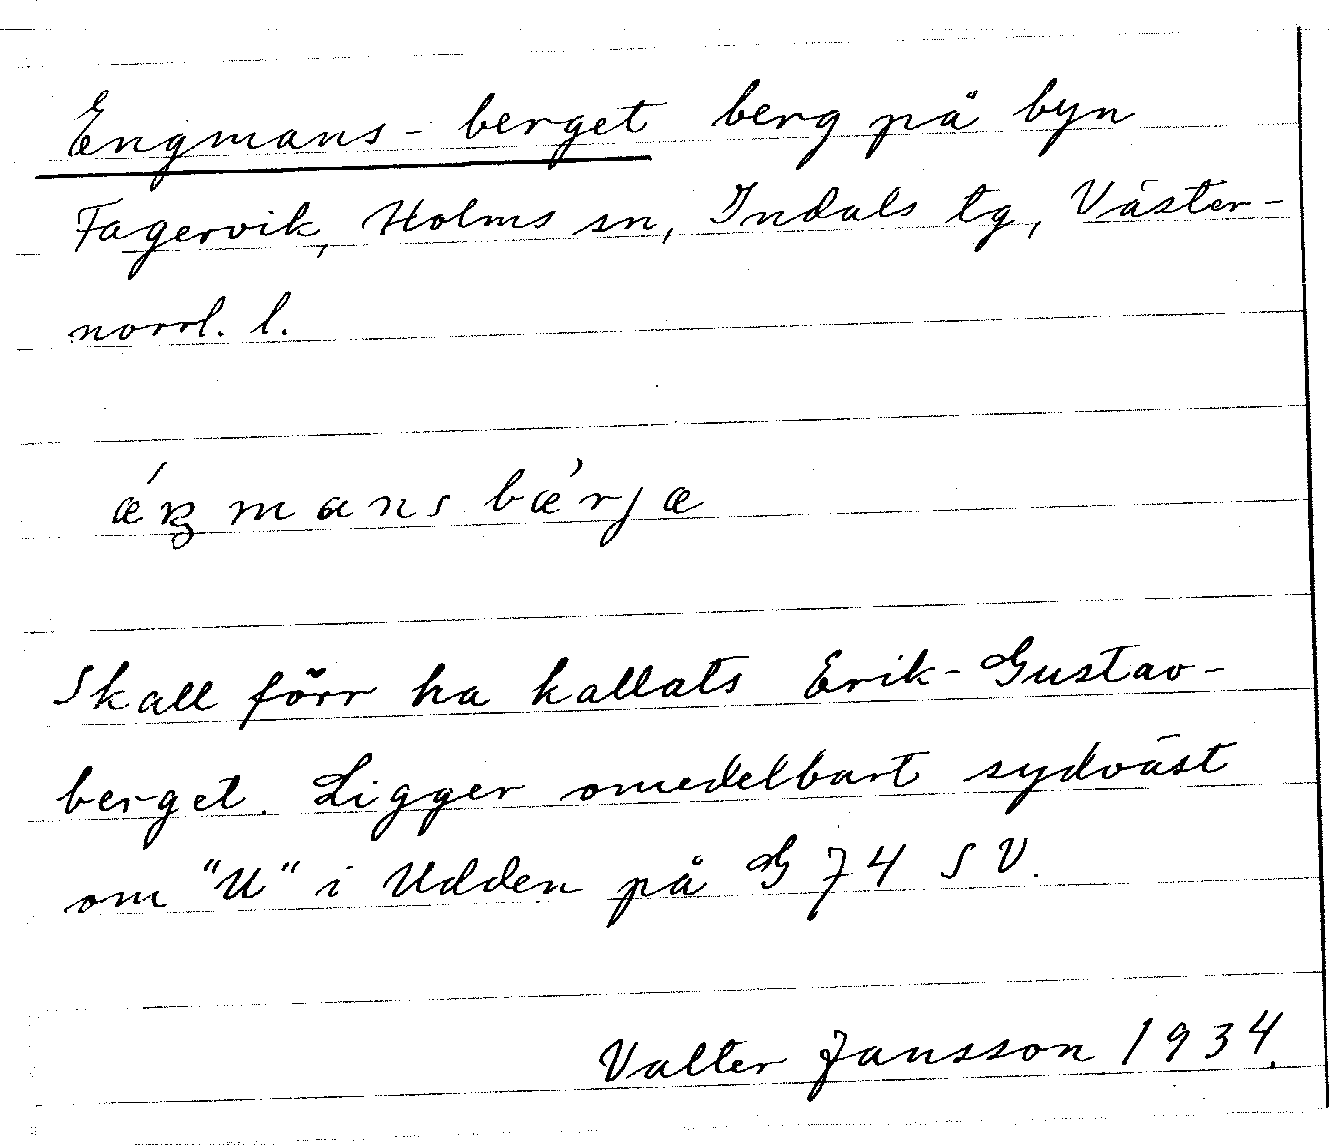 Engmans-berget berg på byn
Fagervik, Holms sn, Indals tg, Väster-
norrl. l.
ǽŋmans bǽrjæ
Skall förr ha kallats Erik-Gustav-
berget. Ligger omedelbart sydväst
om "U" i Udden på G 74 SV.
Valter Jansson 1934.